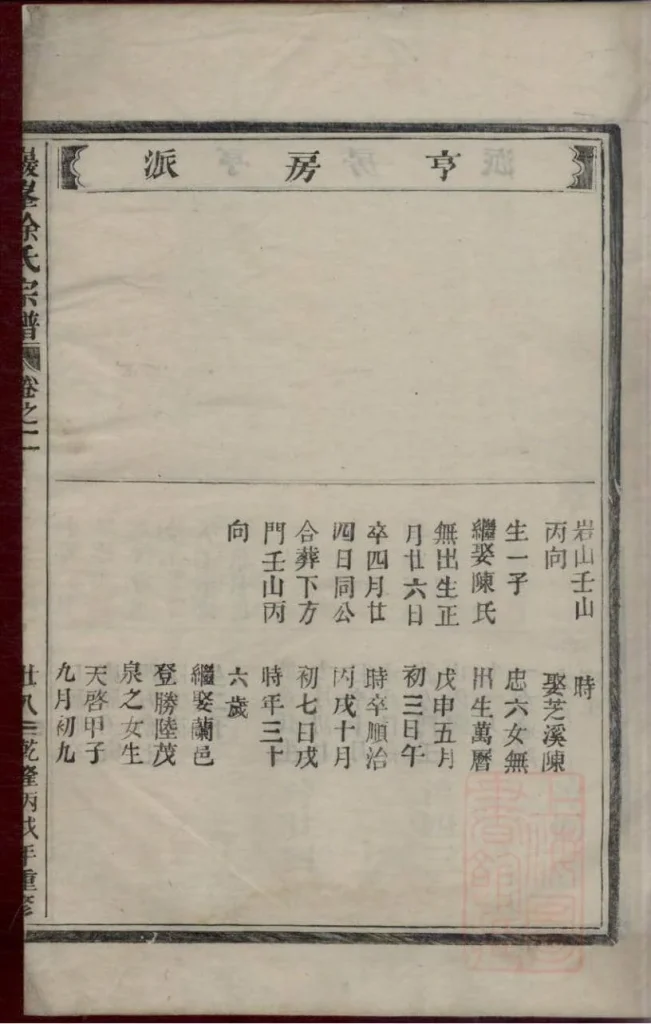 亨房派
岩山壬山
丙向
生一子
繼娶陳氏
無出生正
月廿六日
卒四月廿
四日同公
合葬下方
門壬山丙
向
時
娶芝溪陳
忠六女無
出生萬曆
戊申五月
初三日午
時卒順治
丙戌十月
初七日戌
時年三十
六歲
繼娶蘭邑
登勝陸茂
泉之女生
天啓甲子
九月初九
徐氏宗譜
卷之二
廿八
乾隆丙戌年重修